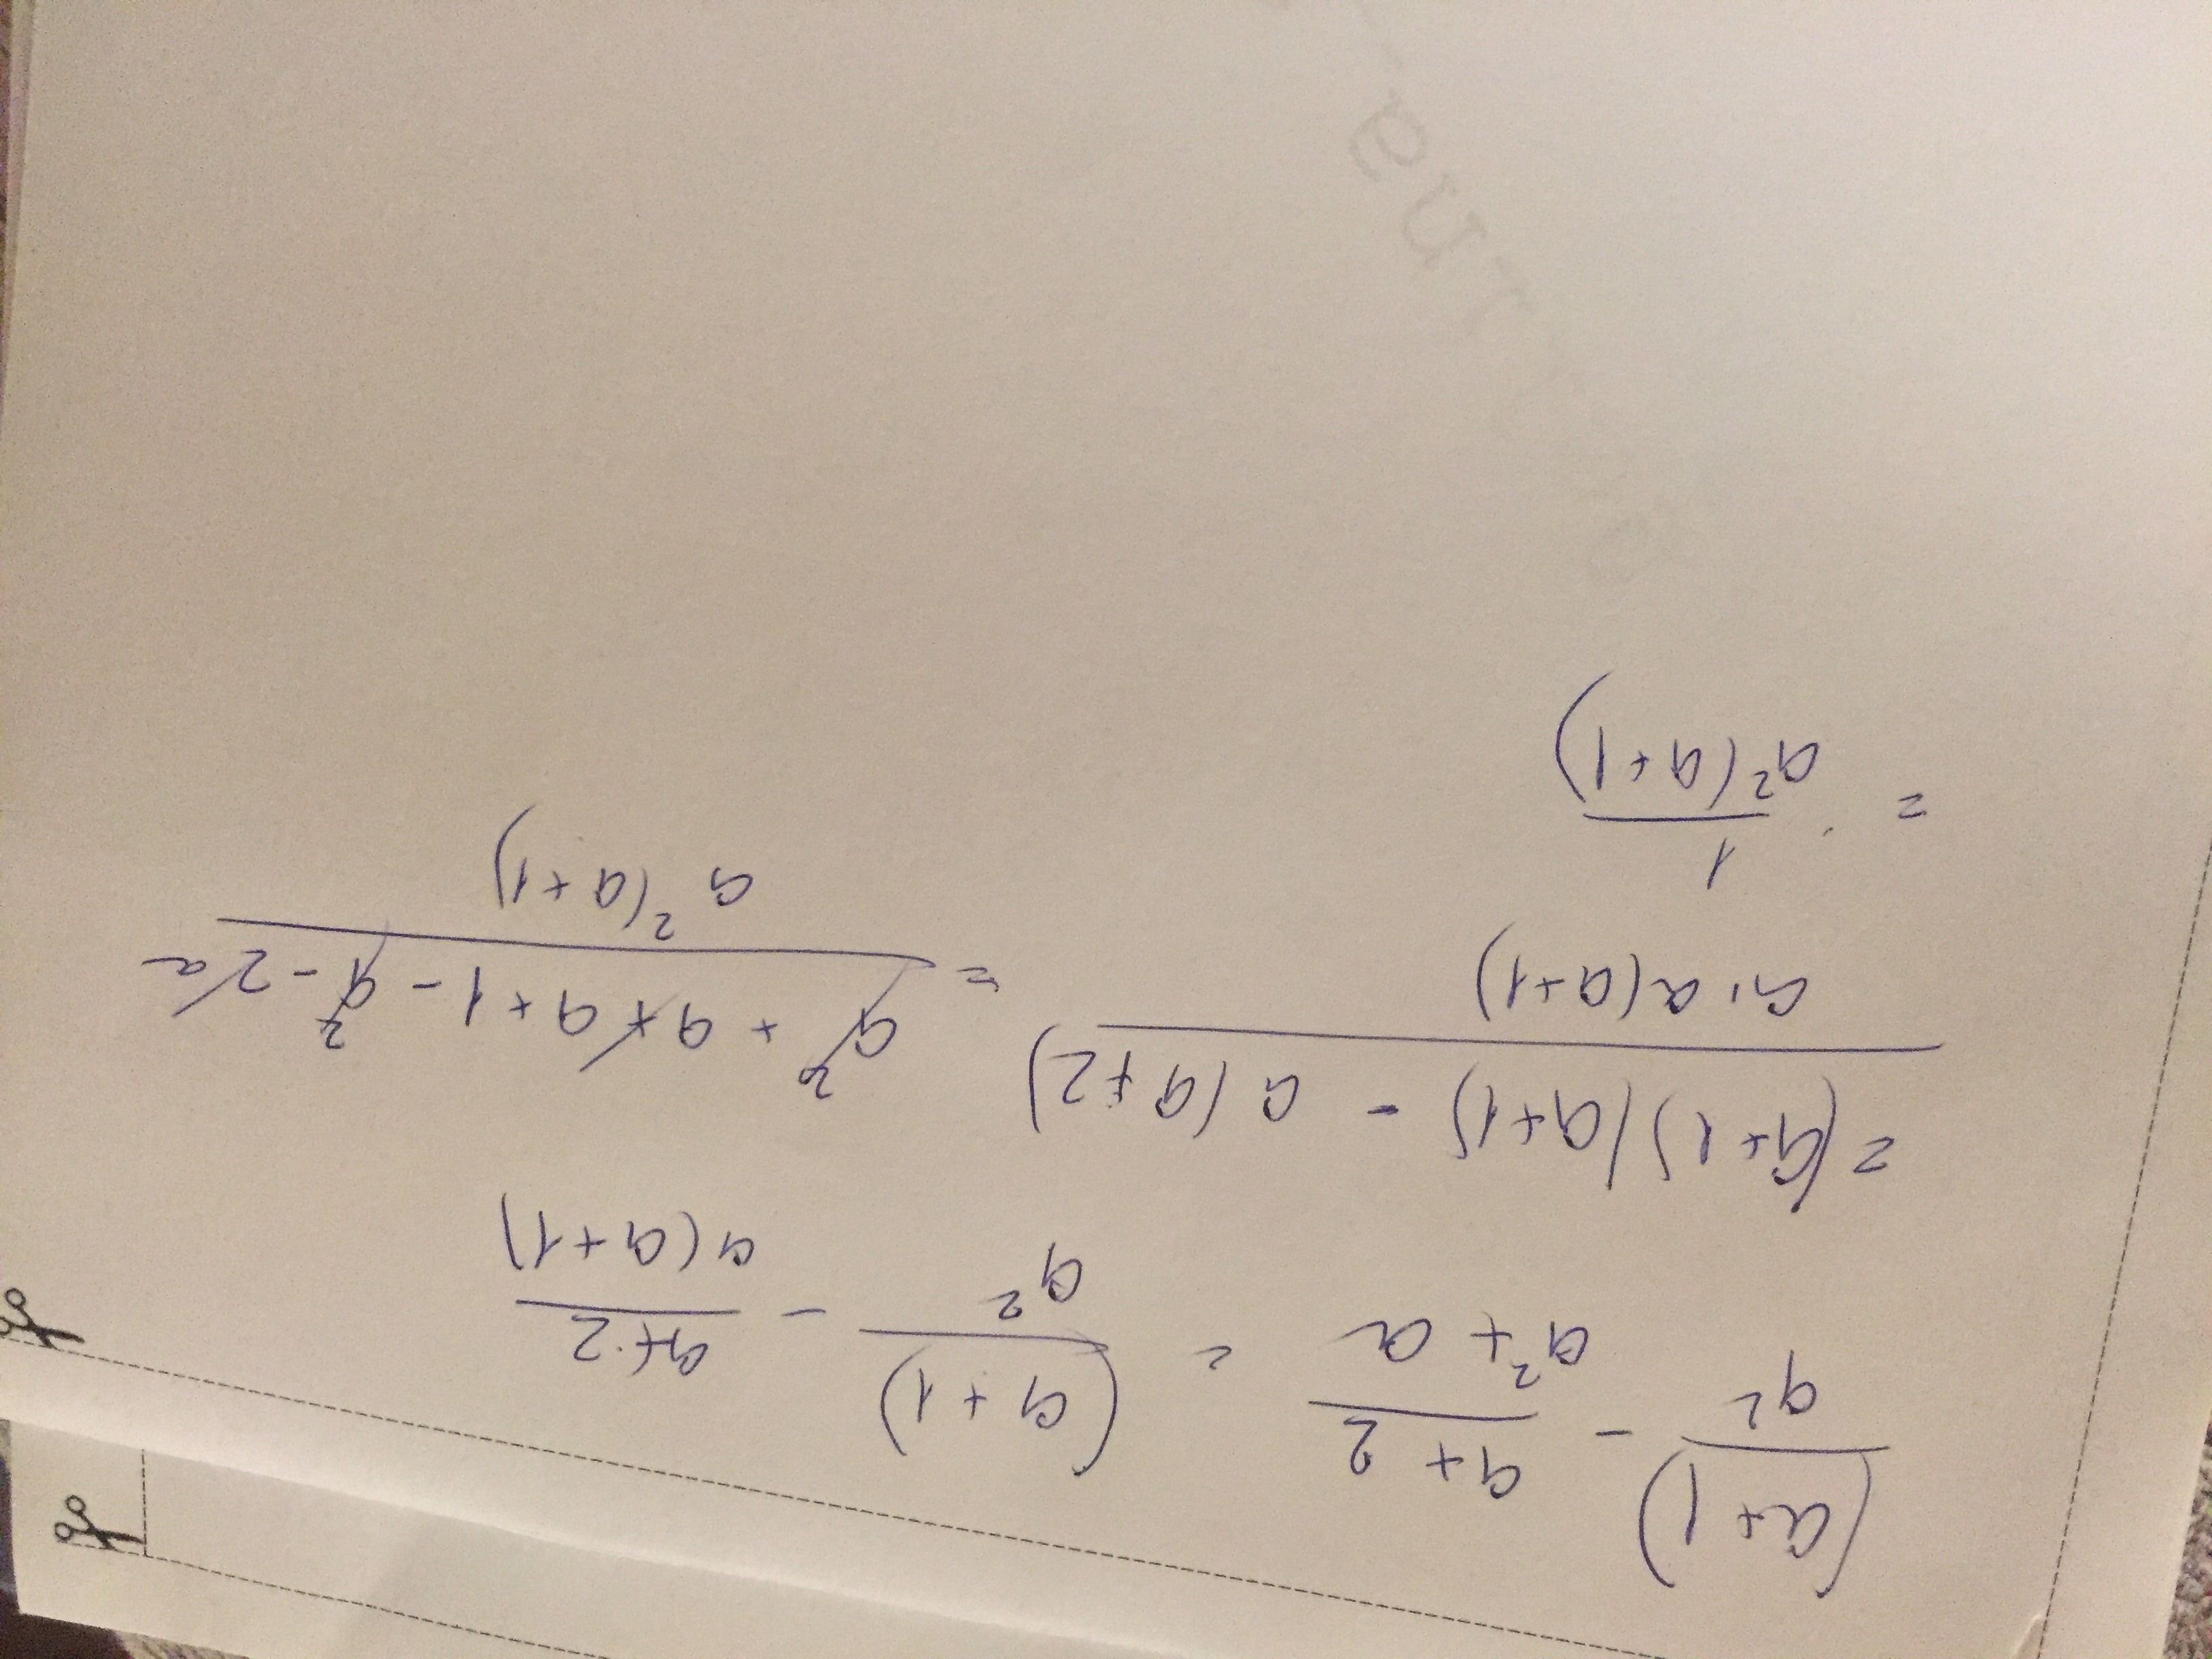 (a+1)/a² - a+2/a²+a = (a+1)/a² - a+2/a(a+1)
= (a+1)(a+1) - a(a+2)/a·a(a+1) = a²+a+a+1-a²-2a/a²(a+1)
= 1/a²(a+1)